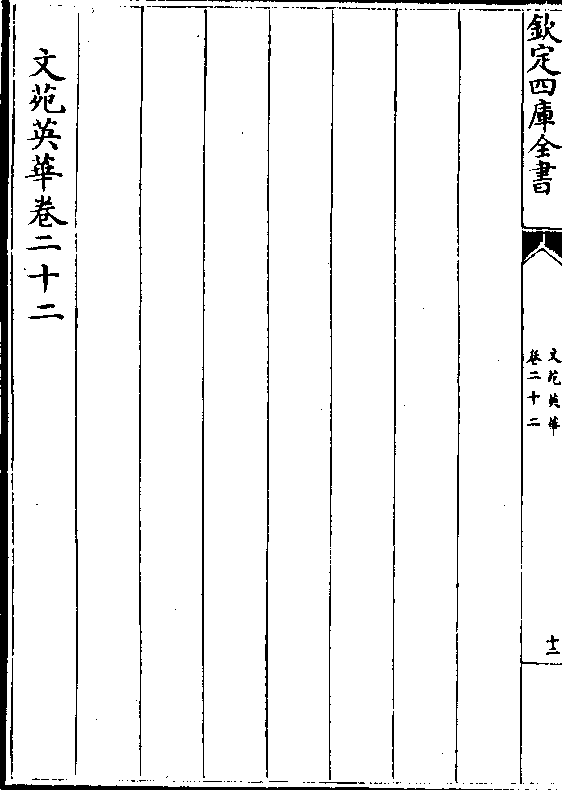 欽定四庫全書
文苑英華
卷二十二
十二
文苑英華卷二十二